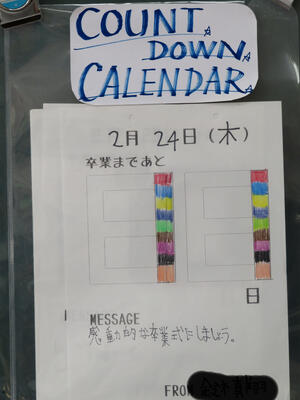 COUNT
DOWN
CALENDAR
2月 24日(木)
卒業まであと
11
日
MESSAGE
感動的な卒業式にしましょう。
FROM